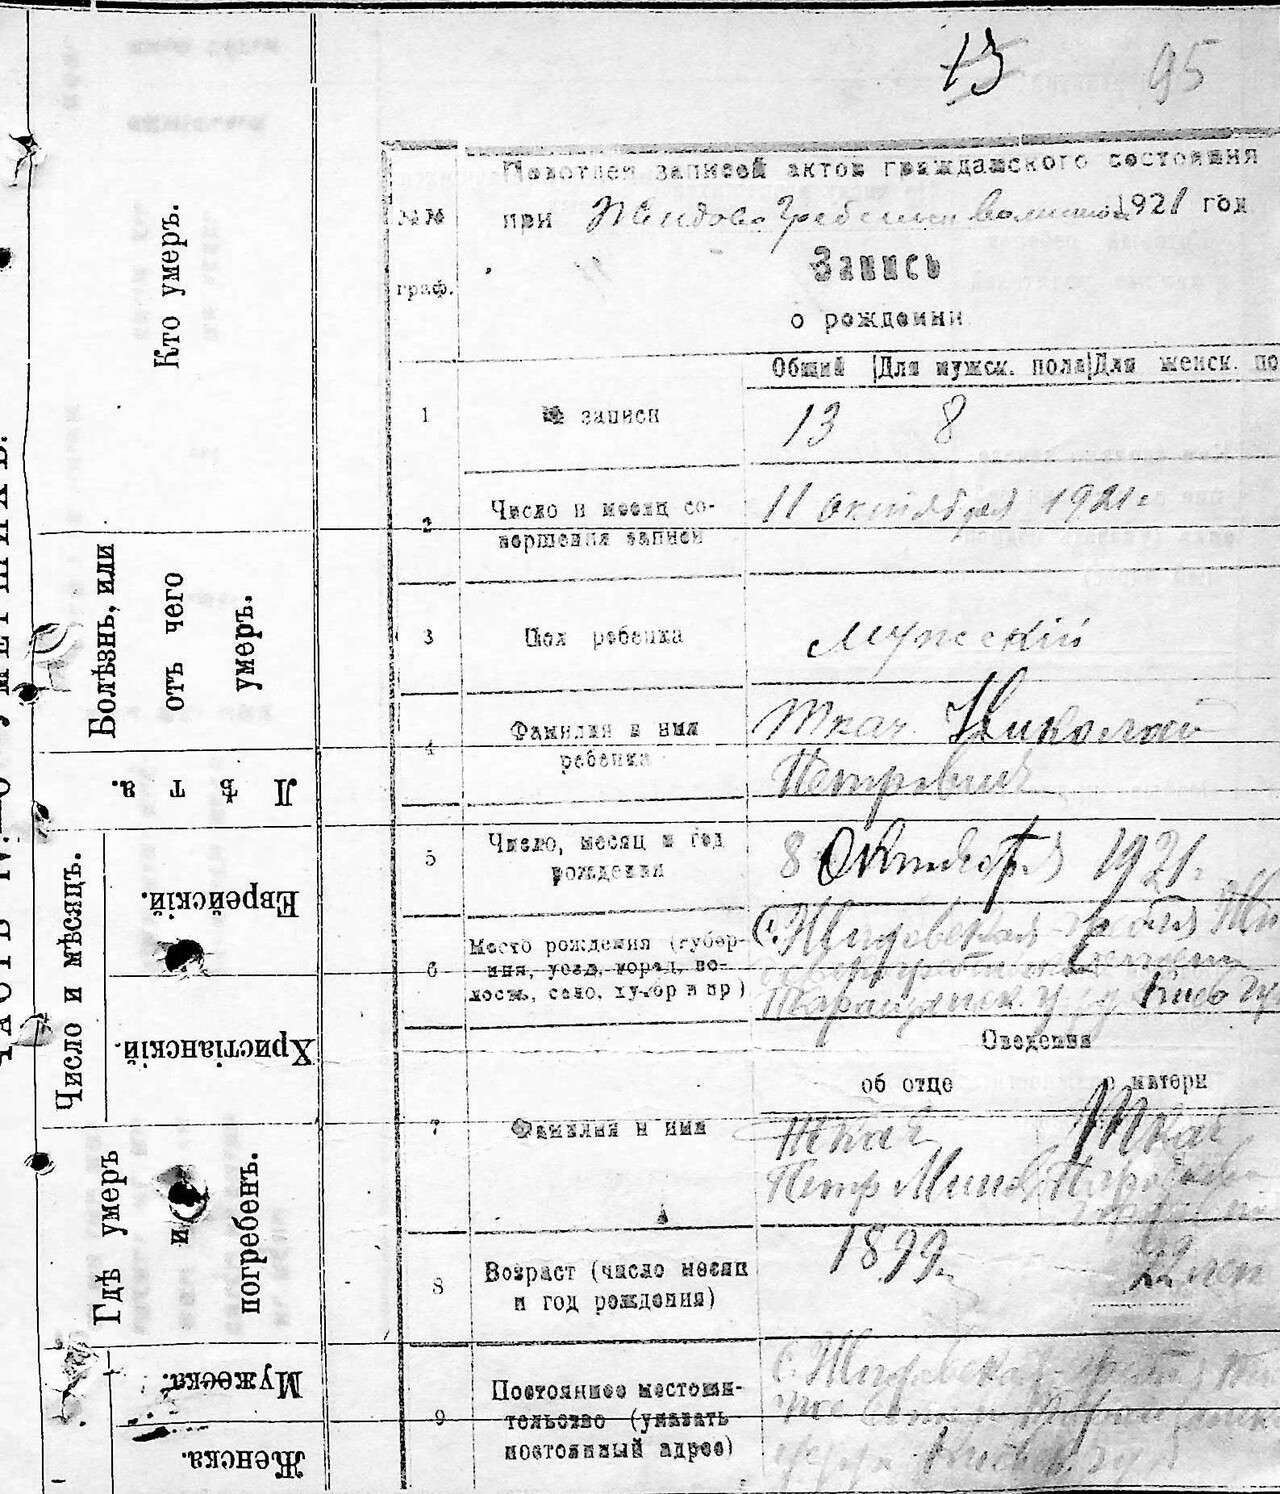 13 95
Подотдел записей актов гражданского состояния
№№ при Жидово Гребельск Волистом 1921 год
Запись
граф.
о рождении
Общий Для мужск. пола Для женск. по
1 № записи 13 8
2 Число и месяц со- 11 октября 1921 г
вершения записи
3 Пол ребенка мужский
4 Фамилия и имя Ткач Николай
ребенка Петрович
5 Число, месяц и год 8 Октября 1921 г
рождения
6 Место рождения (губер- С. Жидовская гребля
ния, уезд, город, во-
лость, село, хутор и пр) Таращанск. у Киев гу
Сведения
об отце о матери
7 Фамилия и имя Ткач Ткач
Петр Минов
8 Возраст (число месяц 1899 22 лет
и год рождения)
9 Постоянное местожи- С Жидовская гребля
тельство (указать
постоянный адрес) Киевск. гу
Кто умеръ.
Болѣзнь, или
отъ чего
умеръ.
Лѣта.
Число и мѣсяцъ.
Еврейскій.
Христіанскій.
Гдѣ умеръ
и
погребенъ.
Мужеска.
Женска.